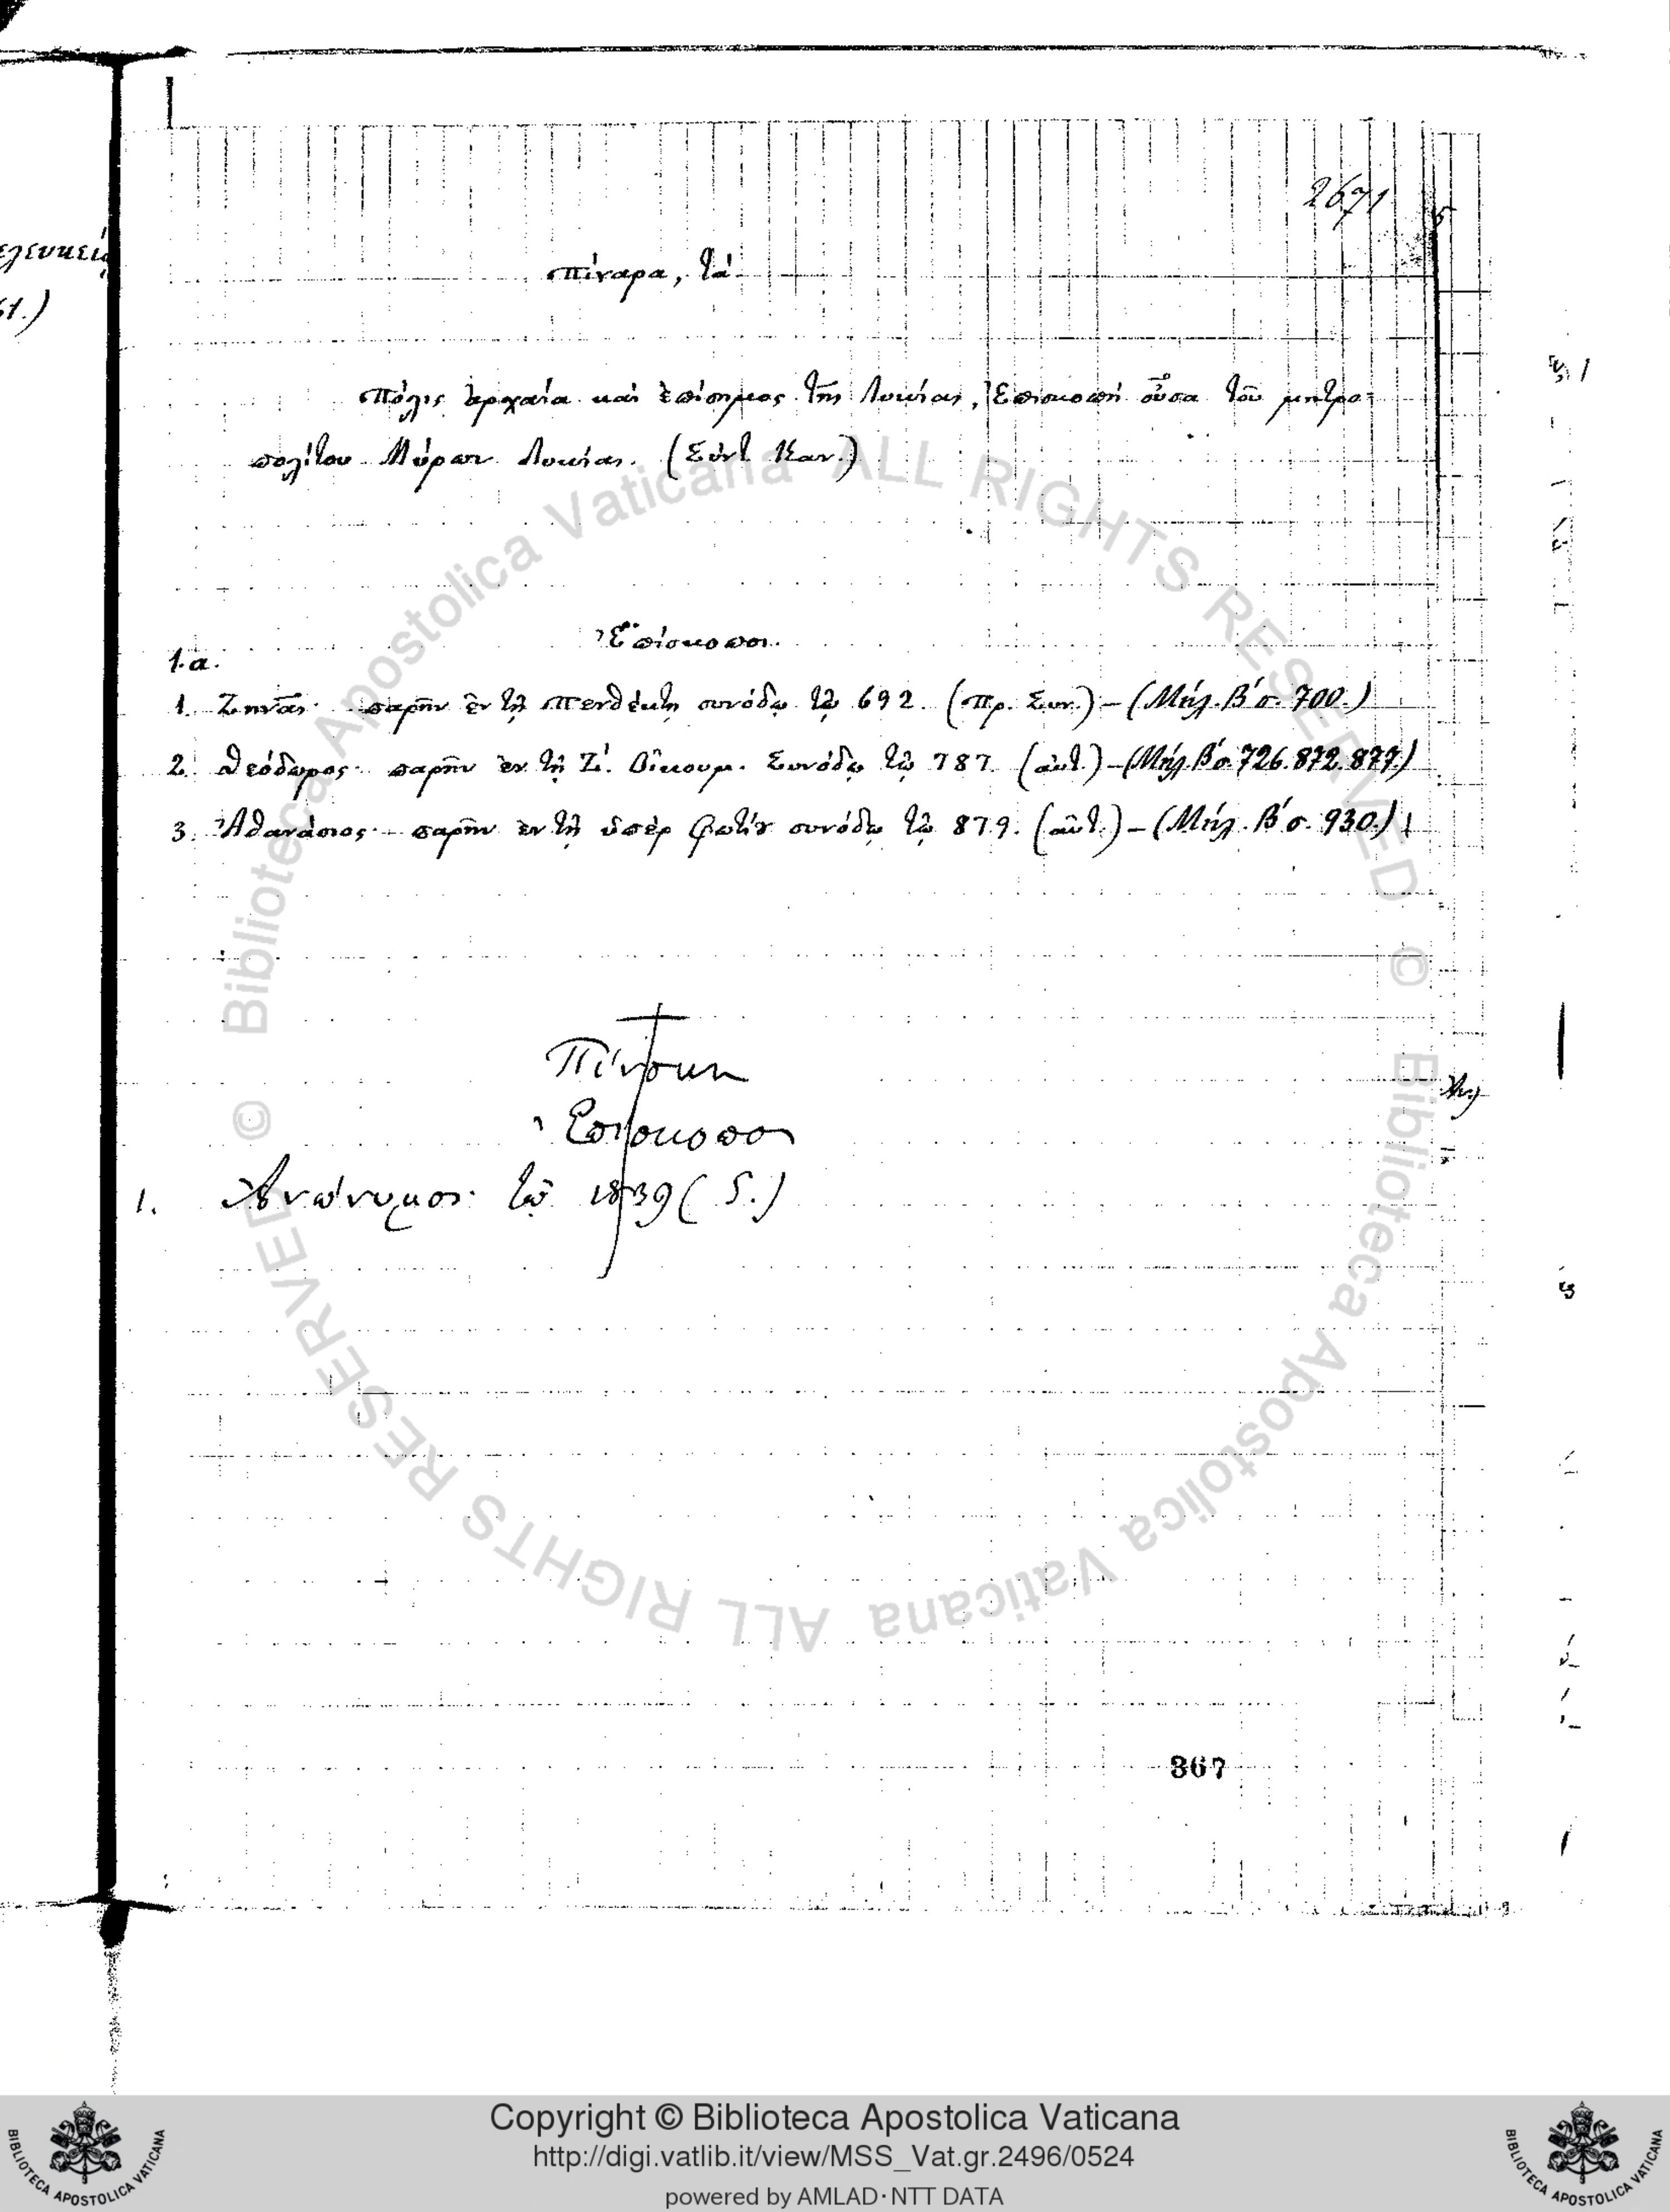 2671
ελευκεί
Πίναρα, τά
61.)
Πόλις ἀρχαία καὶ ἐπίσημος τῆς Λυκίας, Ἐπισκοπὴ οὖσα τοῦ μητρο-
πολίτου Μύρων Λυκίας. (Σύντ Καν.)
Ἐπίσκοποι.
1.α.
1. Ζηνᾶς· παρῆν ἐν τῇ Πενθέκτῃ συνόδῳ τῷ 692. (Πρ. Συν.) – (Μήλ. Β΄ σ. 700.)
2. Θεόδωρος· παρῆν ἐν τῇ Ζ΄. Οἰκουμ. Συνόδῳ τῷ 787 (αὐτ.) – (Μήλ. Β΄ σ. 726. 872. 877.)
3. Ἀθανάσιος· παρῆν ἐν τῇ ὑπὲρ Φωτίου συνόδῳ τῷ 879. (αὐτ.) – (Μήλ. Β΄ σ. 930.)
Πίνσκη
Ἐπίσκοποι
1. Ἀνώνυμος· τῷ 1839 (S.)
367
© Biblioteca Apostolica Vaticana ALL RIGHTS RESERVED © Biblioteca Apostolica Vaticana ALL RIGHTS RESERVED
Copyright © Biblioteca Apostolica Vaticana
http://digi.vatlib.it/view/MSS_Vat.gr.2496/0524
powered by AMLAD·NTT DATA
BIBLIOTECA APOSTOLICA VATICANA
BIBLIOTECA APOSTOLICA VATICANA